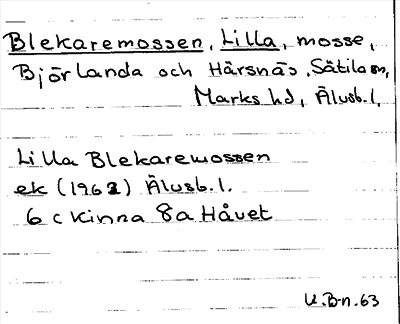 Blekaremossen, Lilla, mosse,
Björlanda och Hårsnäs, Sätila sn,
Marks hd, Älvsb.l.
Lilla Blekaremossen
ek (1962) Älvsb.l.
6 c Kinna 8a Håvet
U.B-n.63